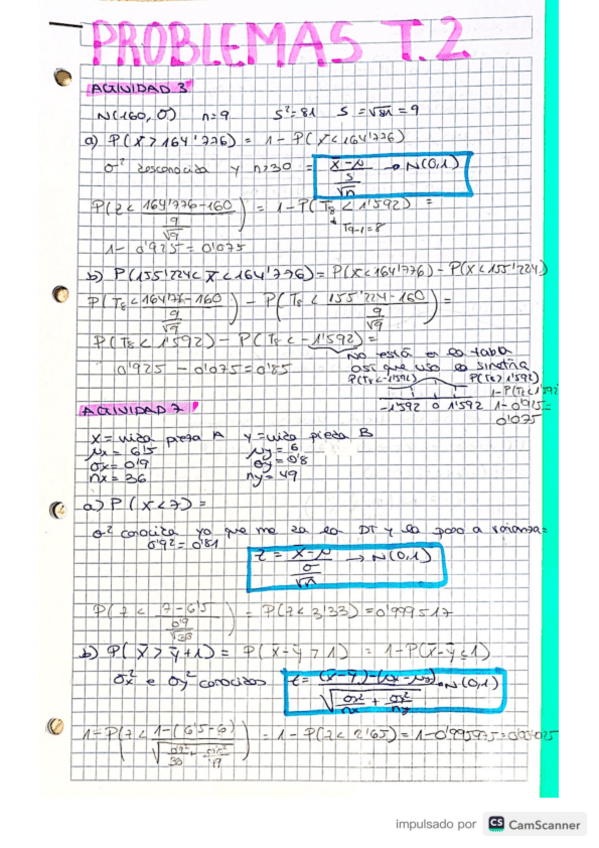 PROBLEMAS T.2
ACTIVIDAD 3
N(160, σ) n=9 S²=81 S=√81=9
a) P(x̄>164'776) = 1-P(x̄<164'776)
σ² desconocida y n>30 = x̄-μ / s/√n → N(0,1)
P(Z< 164'776-160 / 9/√9) = 1-P(T8<1'592) =
T9-1=8
1-0'925=0'075
b) P(155'224<x̄<164'776)=P(x̄<164'776)-P(x̄<155'224)
P(T8<164'776-160 / 9/√9) - P(T8< 155'224-160 / 9/√9)=
P(T8<1'592)-P(T8<-1'592)=
No está en la tabla
0'925 - 0'075=0'85 así que uso la simetría
P(T8<-1'592) P(T8>1'592)
1-P(T8<1'592
-1'592 0 1'592 1-0'925=
0'075
ACTIVIDAD 7
X=vida pieza A Y=vida pieza B
μx=6'5 μy=6
σx=0'9 σy=0'8
nx=36 ny=49
a) P(x̄<7)=
σ² conocida ya que me da la DT y la paso a varianza=
0'9²=0'81
Z= x̄-μ / σ/√n → N(0,1)
P(Z< 7-6'5 / 0'9/√36) = P(Z<3'33)=0'999517
b) P(x̄>ȳ+1)= P(x̄-ȳ>1) = 1-P(x̄-ȳ≤1)
σx² e σy² conocidos Z= (x̄-ȳ)-(μx-μy) / √(σx²/nx + σy²/ny) → N(0,1)
1-P(Z< 1-(6'5-6) = 1-P(Z<2'65)=1-0'995975=0'004025
impulsado por CS CamScanner